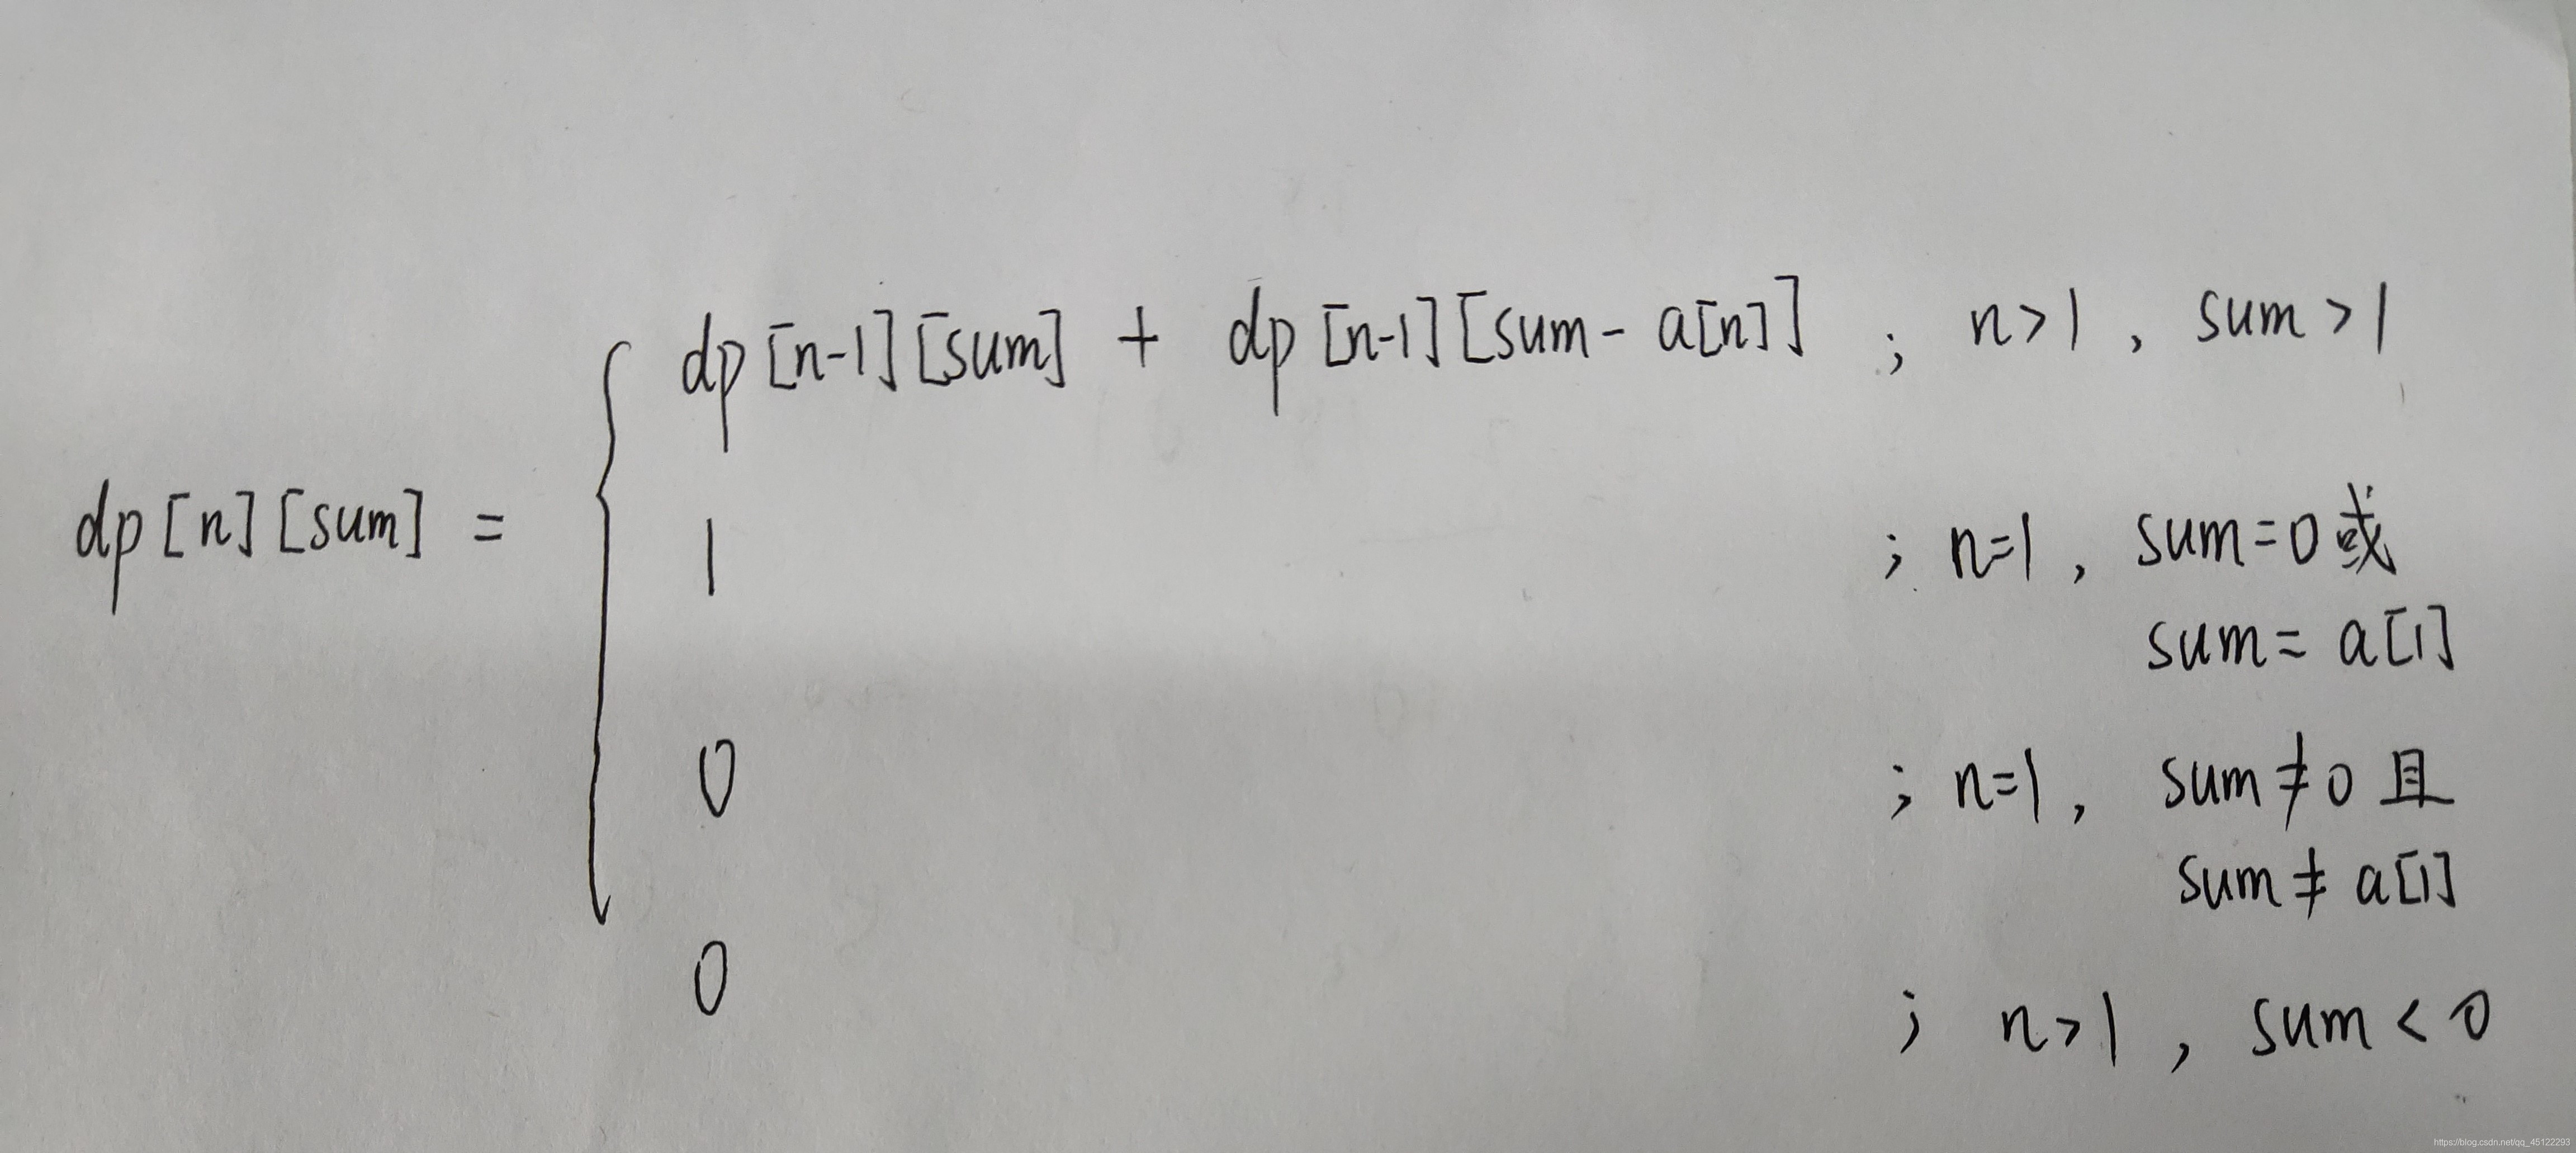 dp[n-1][sum] + dp[n-1][sum-a[n]] ; n>1 , sum>1
dp[n][sum] = { 1 ; n=1 , sum=0 或
sum=a[1]
0 ; n=1 , sum≠0 且
sum≠a[1]
0 ; n>1 , sum<0
https://blog.csdn.net/qq_45122293